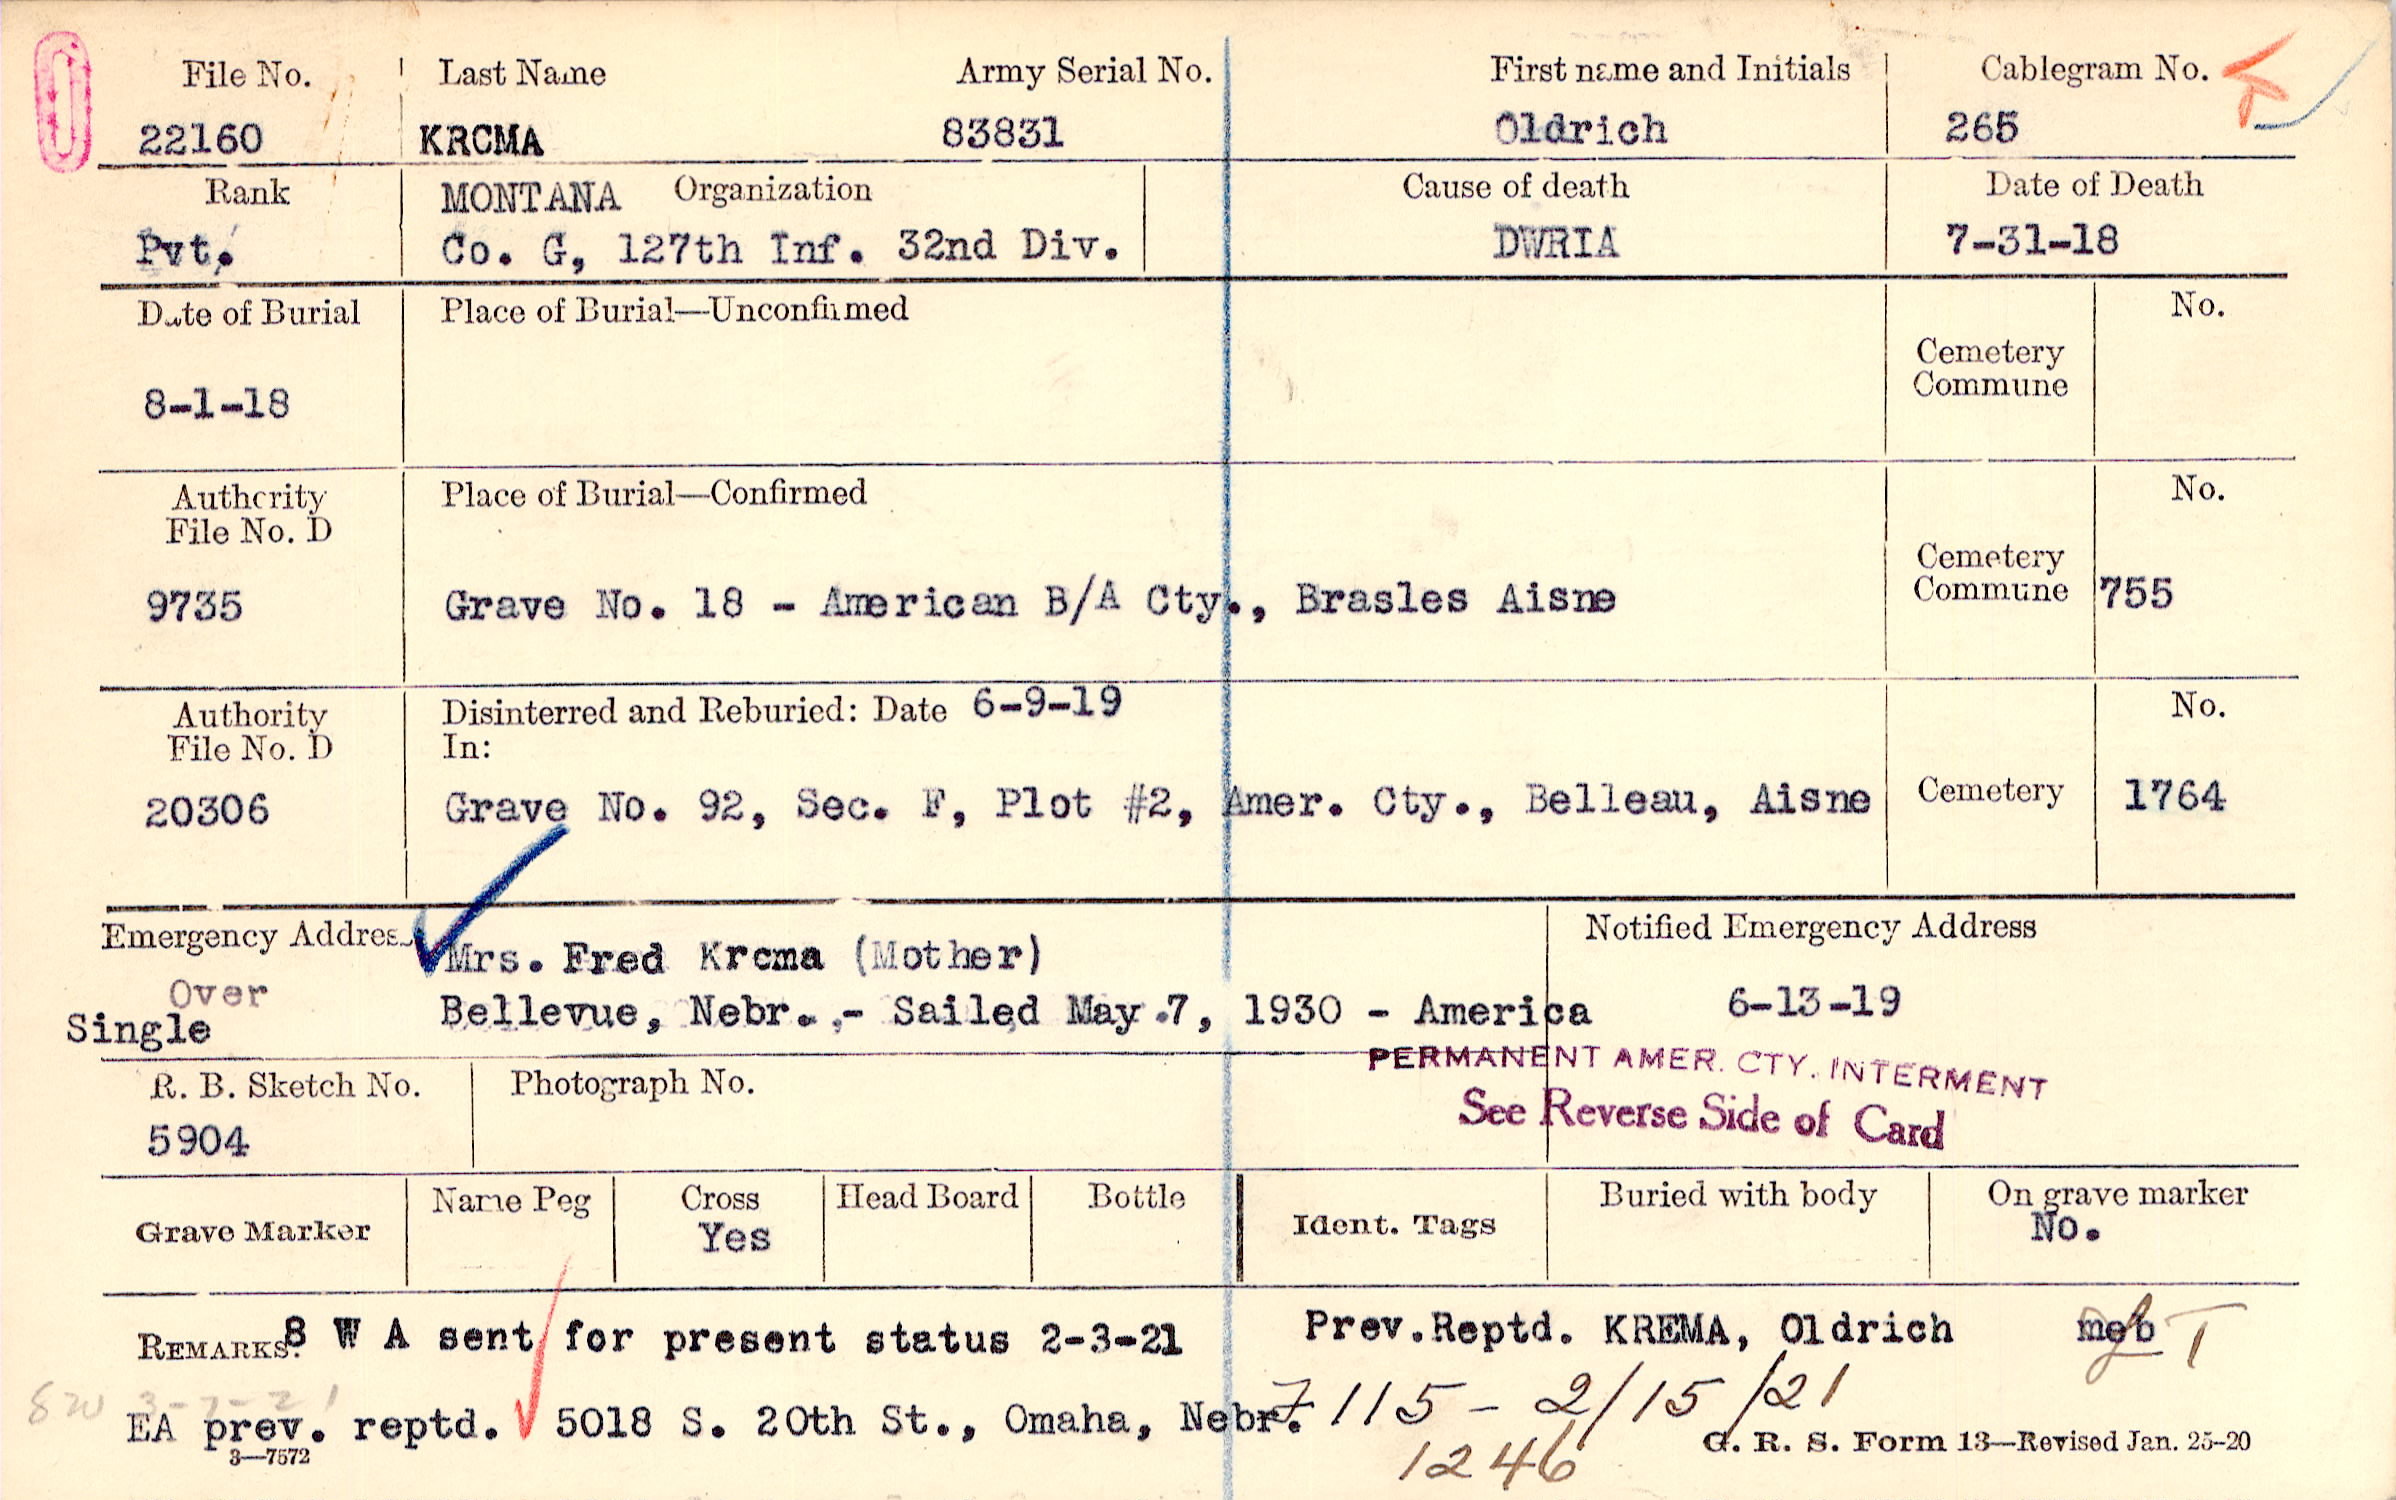 File No. Last Name Army Serial No. First name and Initials Cablegram No.
22160 KRCMA 83831 Oldrich 265
Rank MONTANA Organization Cause of death Date of Death
Pvt. Co. G, 127th Inf. 32nd Div. DWRIA 7-31-18
Date of Burial Place of Burial—Unconfirmed No.
Cemetery
Commune
8-1-18
Authority Place of Burial—Confirmed No.
File No. D
Cemetery
Commune 755
9735 Grave No. 18 - American B/A Cty., Brasles Aisne
Authority Disinterred and Reburied: Date 6-9-19 No.
File No. D In:
20306 Grave No. 92, Sec. F, Plot #2, Amer. Cty., Belleau, Aisne Cemetery 1764
Emergency Address Mrs. Fred Krcma (Mother) Notified Emergency Address
Over
Single Bellevue, Nebr. - Sailed May 7, 1930 - America 6-13-19
PERMANENT AMER. CTY. INTERMENT
See Reverse Side of Card
R. B. Sketch No. Photograph No.
5904
Grave Marker Name Peg Cross Head Board Bottle Ident. Tags Buried with body On grave marker
Yes No.
REMARKS: 8 W A sent for present status 2-3-21 Prev.Reptd. KREMA, Oldrich mgb T
820 3-7-21
EA prev. reptd. 5018 S. 20th St., Omaha, Nebr. 7115 - 2/15/21
1246
3—7572 G. R. S. Form 13—Revised Jan. 25-20